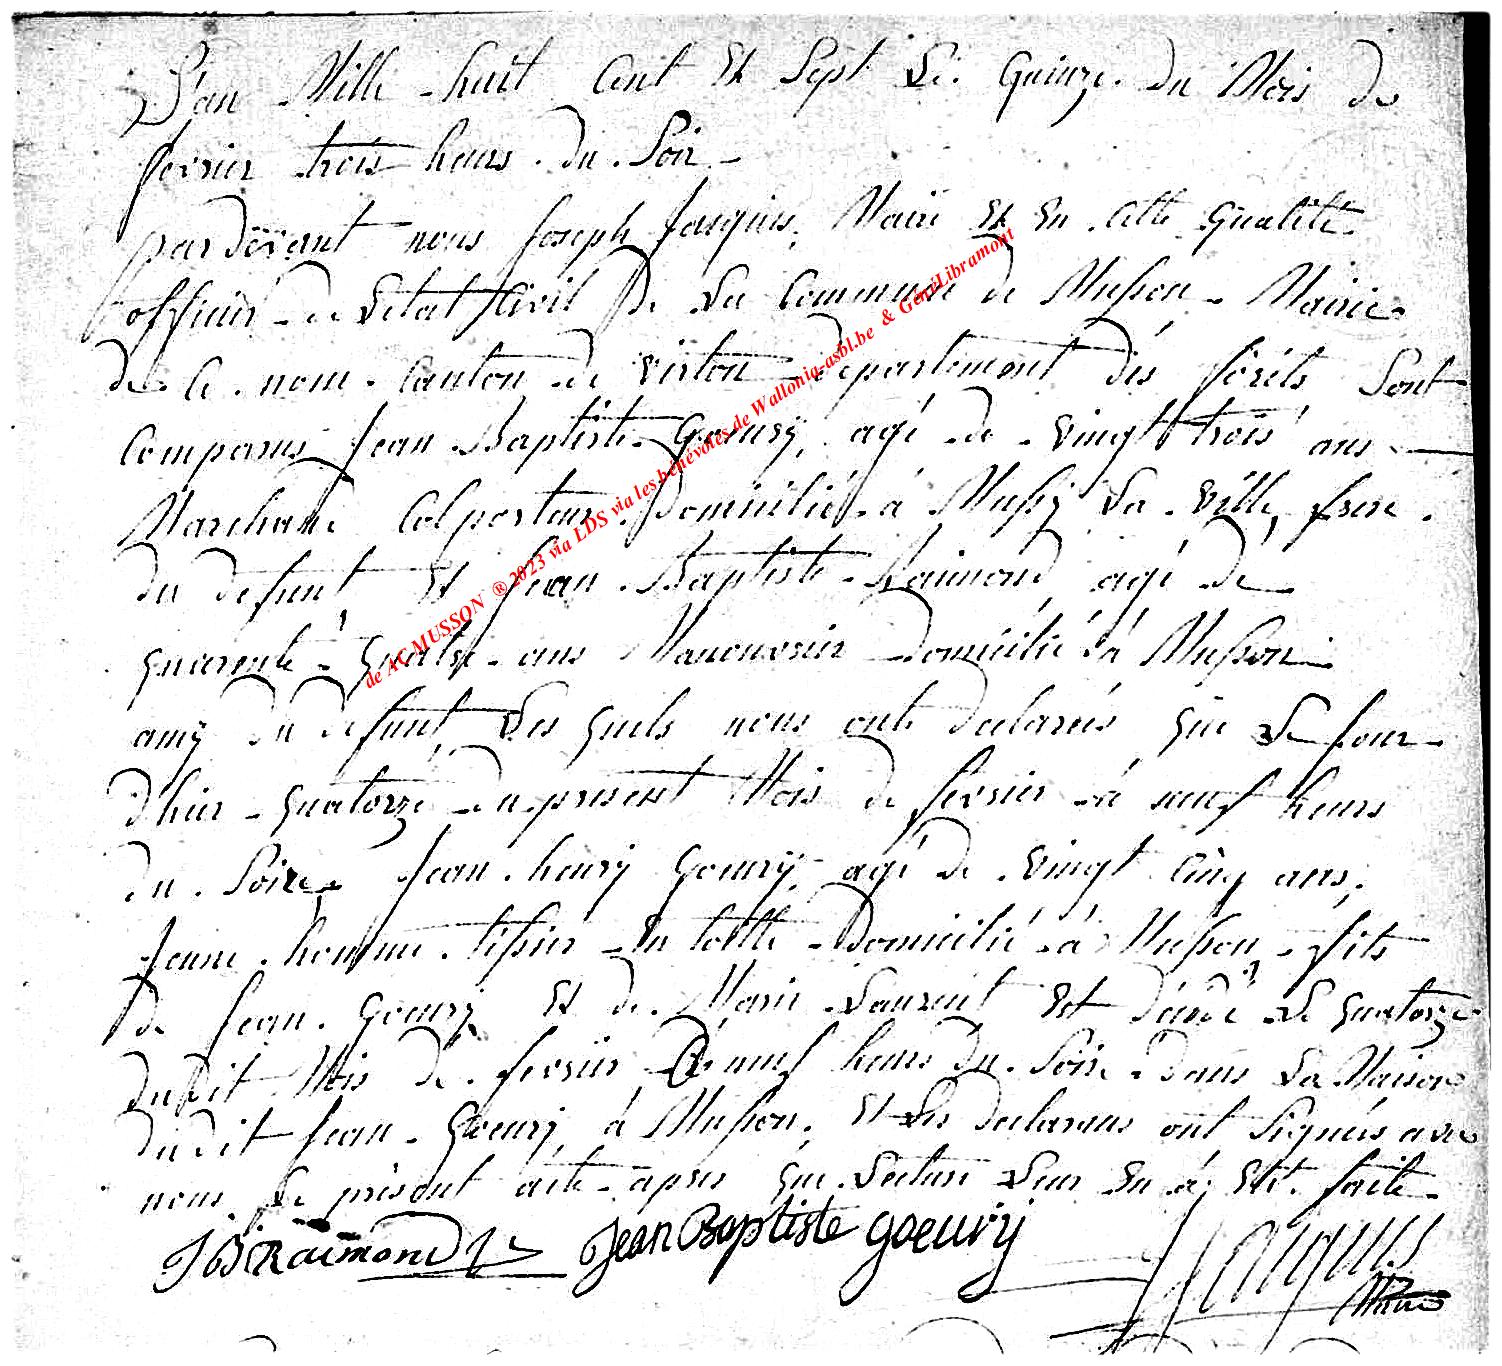 L'an Mille huit Cent Et Sept Le Quinze du Mois de
fevrier trois heurs du Soir
pardevant nous Joseph Jasquis, Maire Et En Cette Qualité
officier de L'etat Civil De La Commune de Musson Mairie
de Ce nom Canton de virton Departement dés foréts Sont
Comparus Jean Baptiste Goeury, agé de vingt trois ans
Marchand Colporteur Domicilié á Mussy La ville, frere
du defunt, Et Jean Baptiste Raimond, agé de
quarente quatre ans Manouvrier Domicilié á Musson
amy du defunt, Les quels nous onts declareés que Le Jour
d'hier quatorze du present Mois de fevrier á neuf heurs
du Soire, Jean henry Goeury, agé de vingt Cinq ans,
Jeune homme tissier En toille Domicilié á Musson, fils
de Jean Goeury Et de Marie Laurent Est décedé Le quatorze
dudit Mois de fevrier á neuf heurs du Soire dans La Maison
dudit Jean Goeury á Musson, Et Les declarans ont Signés avec
nous Le présent acte apres que Lecture Leur En á Eté faite
JB Raimond Jean Baptiste goeury Jasquis
Maire
de AC MUSSON ® 2023 via LDS via les bénévoles de Wallonia-asbl.be & GénéLibramont